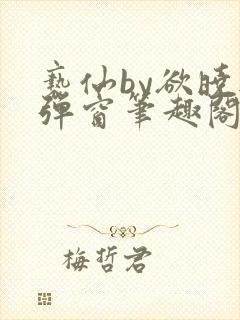 亵仙by欲晓
弹窗笔趣阁
梅哲君